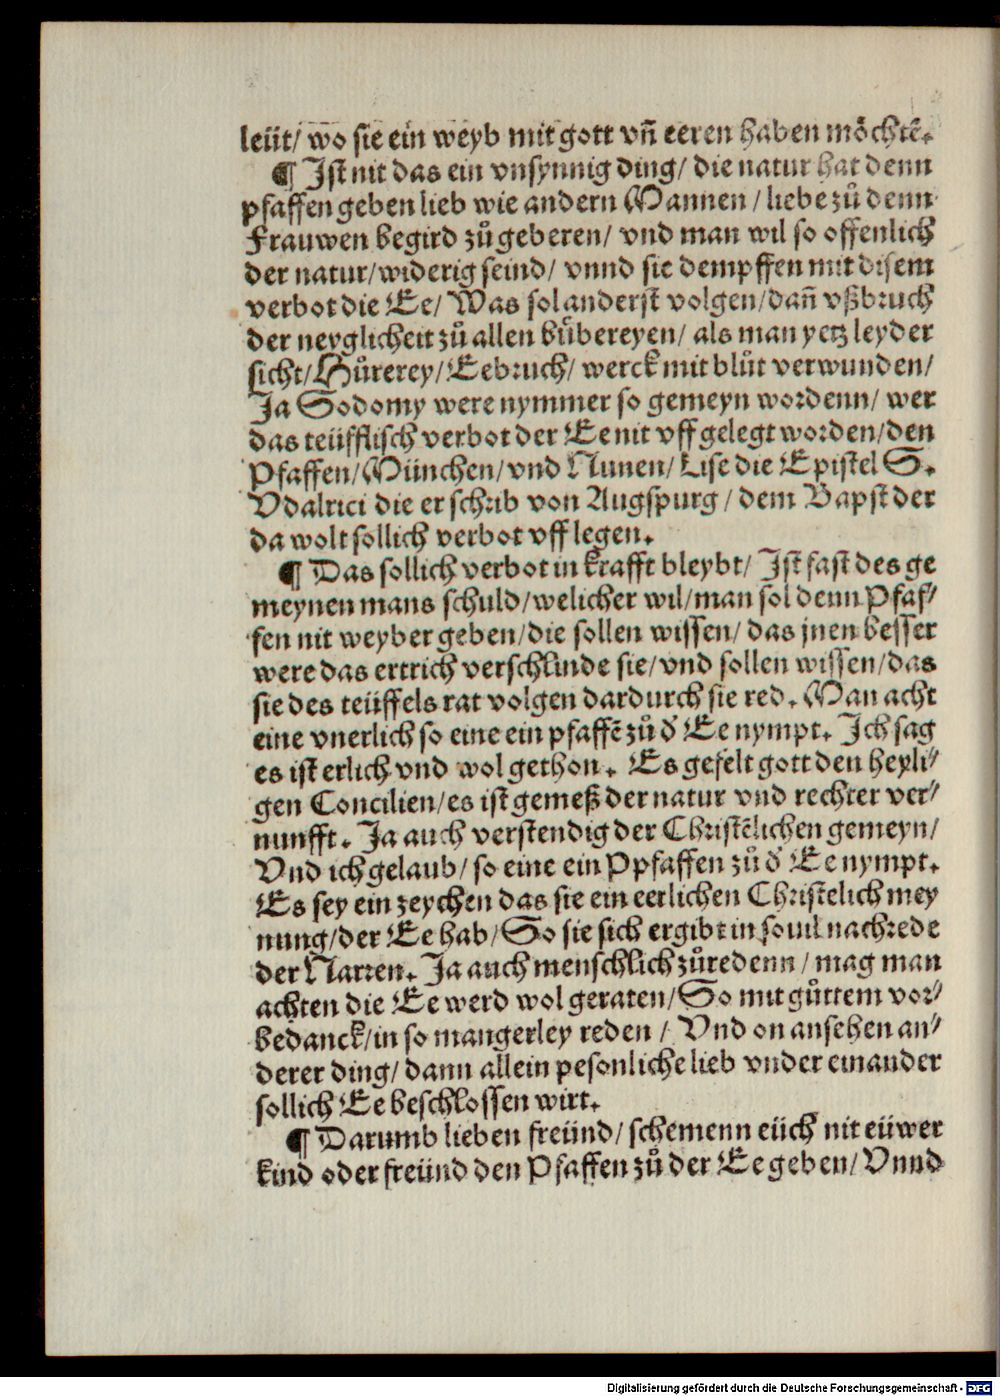 leüt/ wo sie ein weyb mit gott vñ eeren haben möchtē.
¶ Ist nit das ein vnsynnig ding/ die natur hat denn
pfaffen geben lieb wie andern Mannen / liebe zů denn
Frauwen begird zů geberen/ vnd man wil so offenlich
der natur/ widerig seind/ vnnd sie dempffen mit disem
verbot die Ee/ Was sol anderst volgen/ dañ vßbruch
der neyglicheit zů allen bůbereyen/ als man yetz leyder
sicht/ Hůrerey/ Eebruch/ werck mit blůt verwunden/
Ja Sodomy were nymmer so gemeyn wordenn/ wer
das teüfflisch verbot der Ee nit vff gelegt worden/ den
Pfaffen/ München/ vnd Nunen/ Lise die Epistel S.
Vdalrici die er schrib von Augspurg / dem Bapst der
da wolt sollich verbot vff legen.
¶ Das sollich verbot in krafft bleybt/ Ist fast des ge
meynen mans schuld/ welicher wil/ man sol denn Pfaf⸗
fen nit weyber geben/ die sollen wissen/ das jnen besser
were das ertrich verschlinde sie/ vnd sollen wissen/ das
sie des teüffels rat volgen dardurch sie red. Man acht
eine vnerlich so eine ein pfaffē zů d̕ Ee nympt. Ich sag
es ist erlich vnd wol gethon. Es gefelt gott den heyli⸗
gen Concilien/ es ist gemeß der natur vnd rechter ver⸗
nunfft. Ja auch verstendig der Christēlichen gemeyn/
Vnd ich gelaub/ so eine ein Ppfaffen zů d̕ Ee nympt.
Es sey ein zeychen das sie ein eerlichen Christelich mey
nung/ der Ee hab/ So sie sich ergibt in souil nachrede
der Narren. Ja auch menschlich zůredenn / mag man
achten die Ee werd wol geraten/ So mit gůttem vor⸗
bedanck/ in so mangerley reden / Vnd on ansehen an⸗
derer ding/ dann allein pesonliche lieb vnder einander
sollich Ee beschlossen wirt.
¶ Darumb lieben freünd/ schemenn eüch nit eüwer
kind oder freünd den Pfaffen zů der Ee geben/ Vnnd
Digitalisierung gefördert durch die Deutsche Forschungsgemeinschaft - DFG